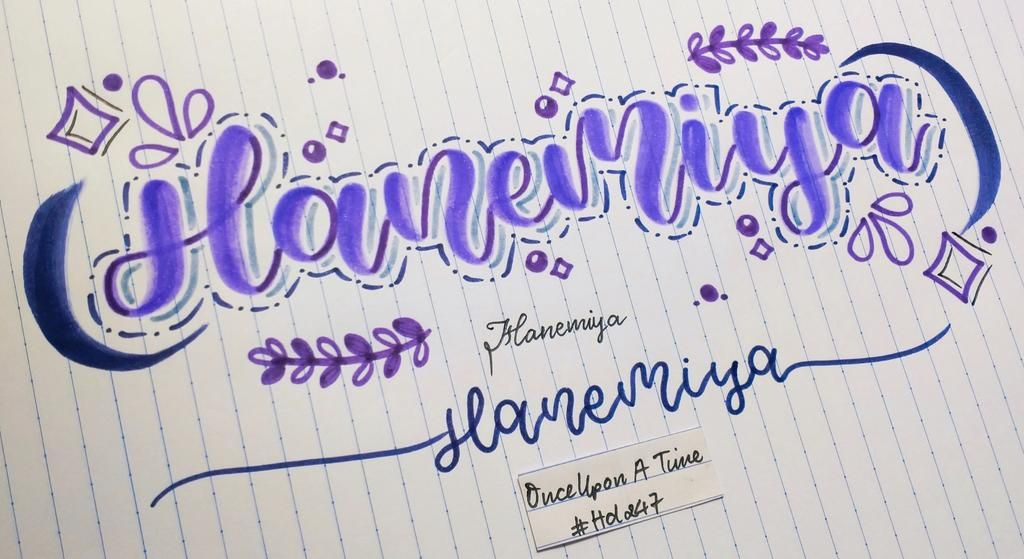 Hanemiya
Hanemiya
Hanemiya
OnceUpon A Time
#Hd247